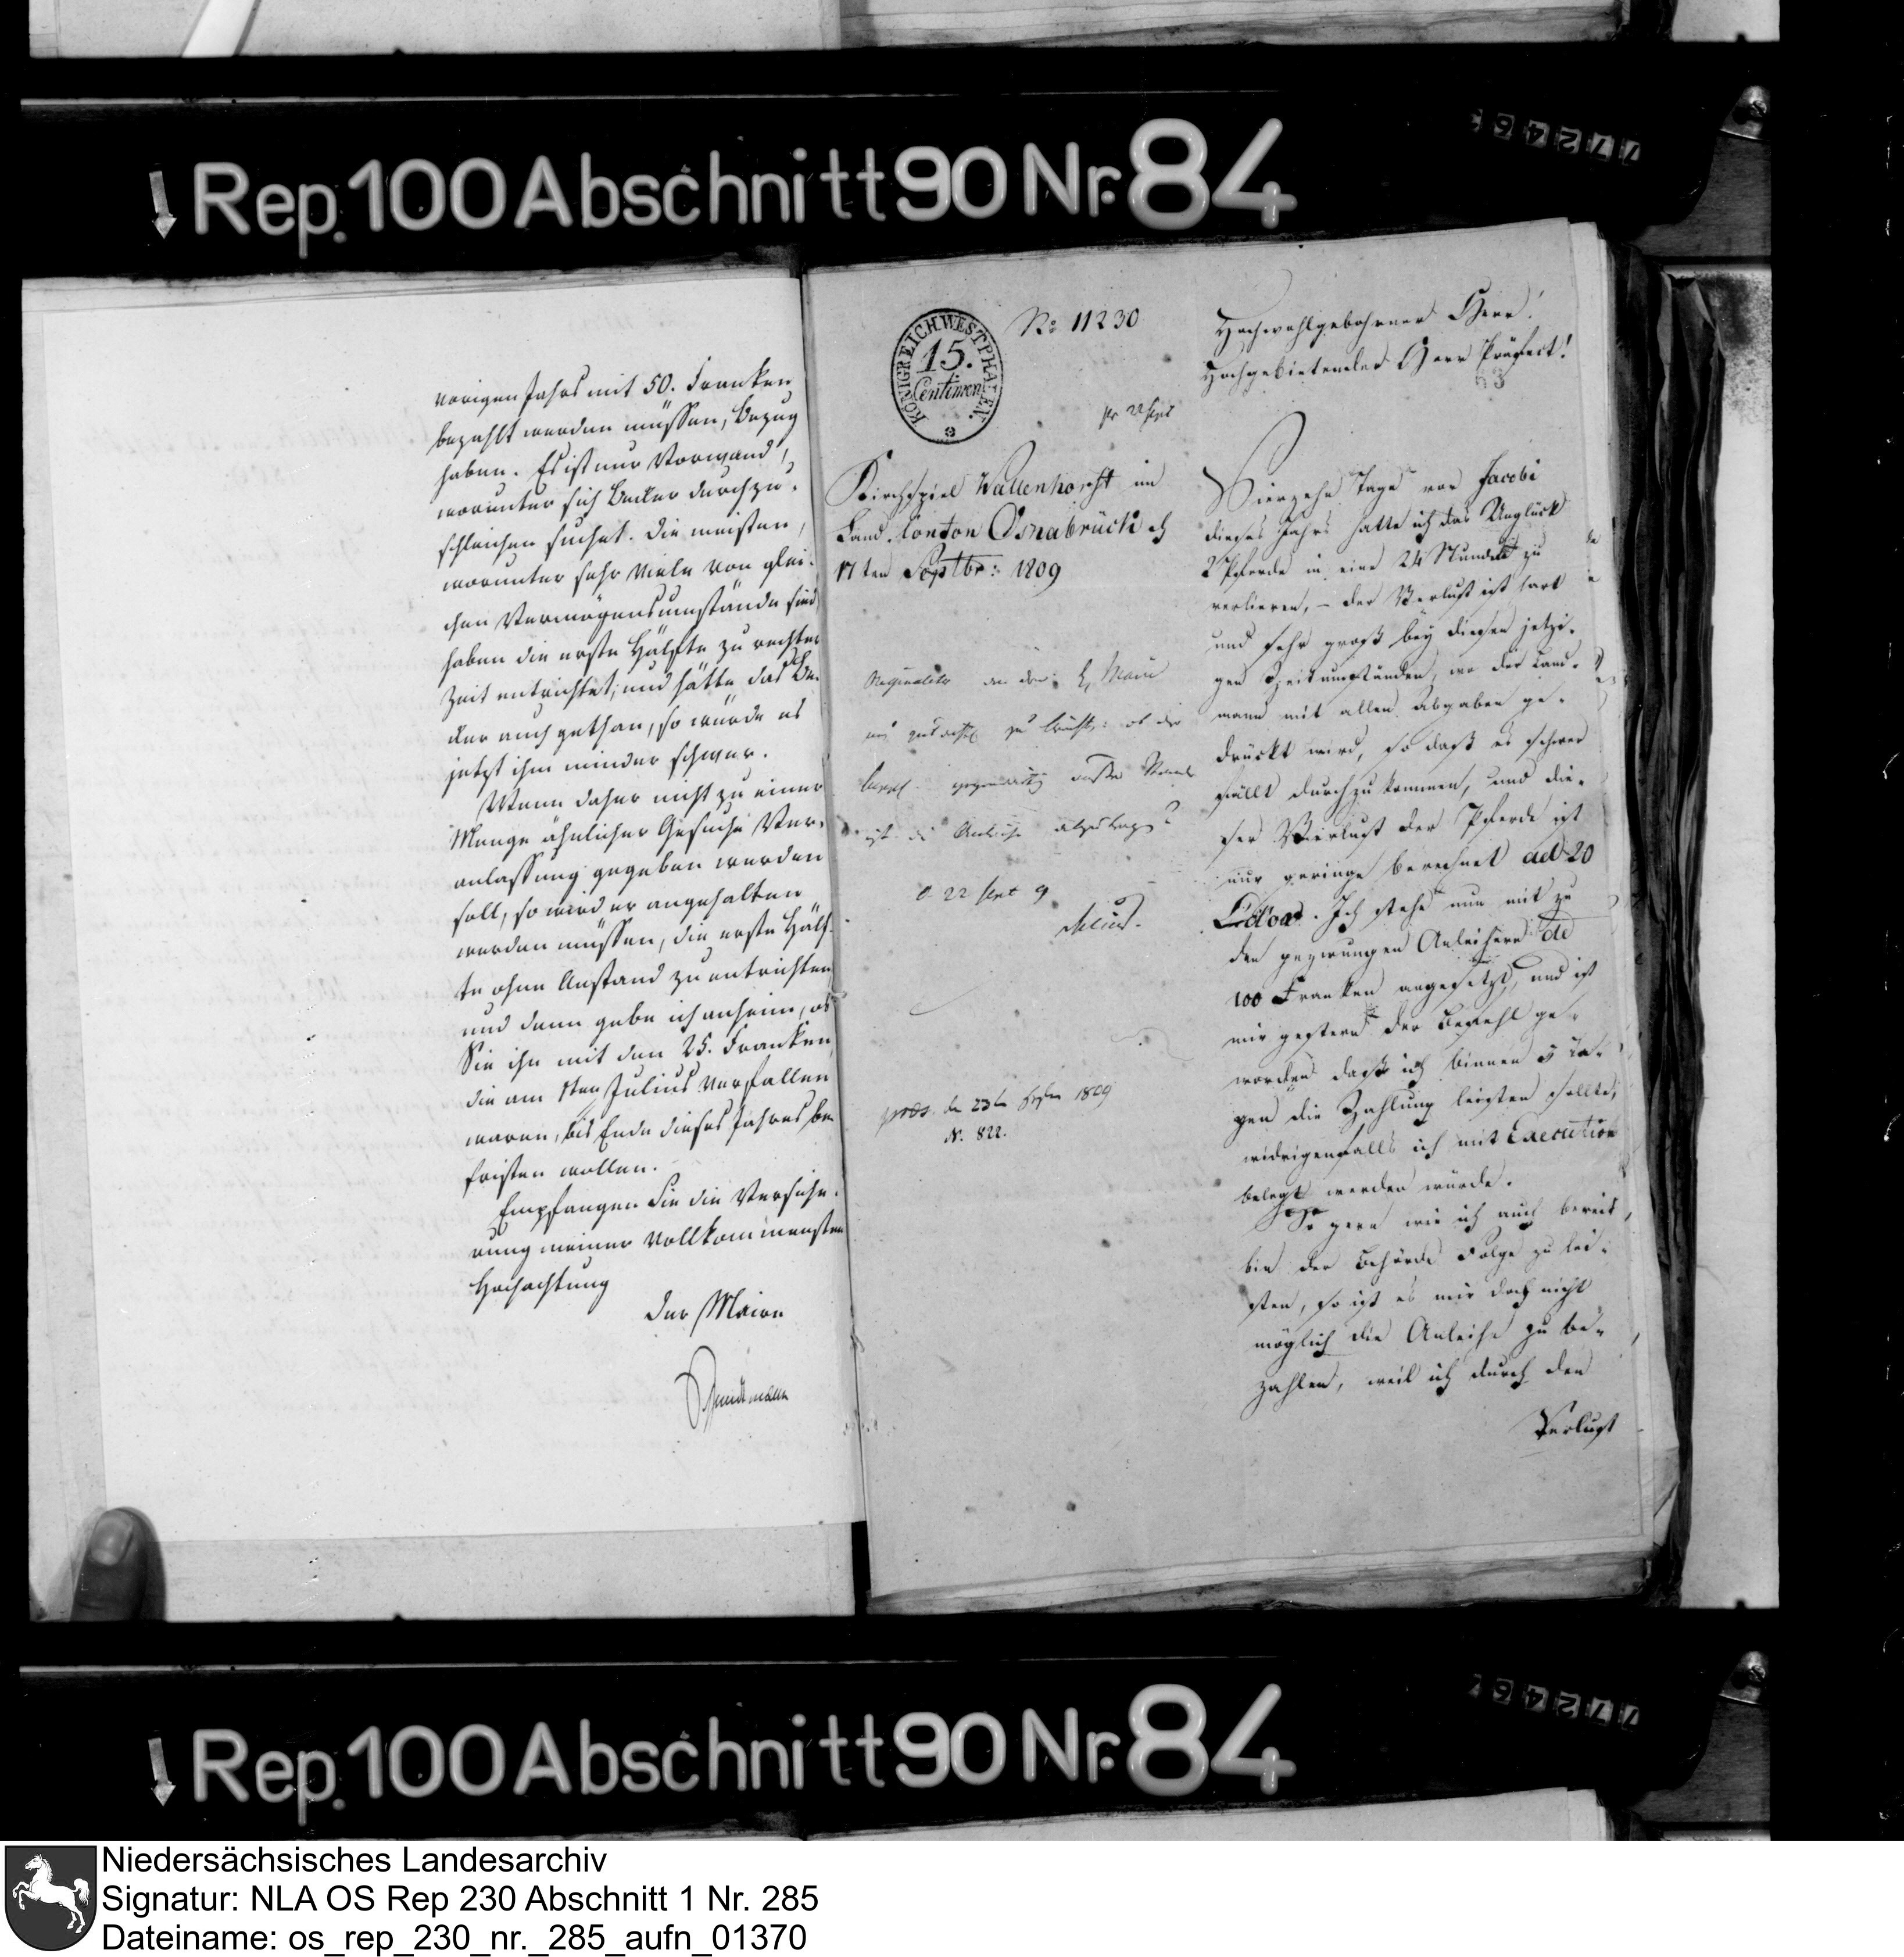 Rep. 100 Abschnitt 90 Nr. 84
77246
vorigen Jahrs mit 50. Franken
bezahlt werden müssen, Bezug
haben. Es ist nur Vorwand,
worunter sich Becker durchzu-
schleichen suchet. Die meisten,
worunter sehr viele von glei-
chen Vermögensumständen sind
haben die erste Hälfte zu rechter
Zeit entrichtet, und hätte das Be-
cker auch gethan, so würde es
jetzt ihm minder schwer.
Wenn daher nicht zu einer
Menge ähnlicher Gesuche Ver-
anlassung gegeben werden
soll, so wird er angehalten
werden müssen, die erste Hälf-
te ohne Anstand zu entrichten
und dann gebe ich anheim, ob
Sie ihn mit den 25. Franken
die am 1ten Julius verfallen
waren, bis Ende dieses Jahres be-
fristen wollen.
Empfangen Sie die Versiche-
rung meiner vollkommensten
Hochachtung
Der Maire
KÖNIGREICH WESTPHALEN.
15.
Centimen
No 11230
pr 22 Sept
Kirchspiel Wallenhorst im
Land. Canton Osnabrück d
17ten Septbr: 1809
an den H. Maire
zu
ist die Anleihe abzutragen?
O 22 Sept 9
praes. den 23ten Septbr 1809
N. 822.
Hochwohlgebohrner Herr!
Hochgebietender Herr Präfect!
63
Vierzehn Tage vor Jacobi
dieses Jahrs hatte ich das Unglück
2 Pferde in eine 24 Stunde zu
verlieren, – der Verlust ist hart
und sehr groß bey diesen jetzi-
gen Zeitumständen, wo der Land-
mann mit allen Abgaben ge-
drückt wird, so daß es schwer
fällt durchzukommen, und die-
ser Verlust der Pferde ist
nur geringe berechnet ad 20
Ich stehe nun mit zu
den gezwungen Anleihern de
100 Franken angesetzt, und ist
mir gestern der Befehl ge-
worden daß ich binnen 5 Ta-
gen die Zahlung leisten sollte,
widrigenfalls ich mit Execution
belegt werden würde.
So gern wie ich auch bereit
bin der Behörde Folge zu lei-
sten, so ist es mir doch nicht
möglich die Anleihe zu be-
zahlen, weil ich durch den
Verlust
Rep. 100 Abschnitt 90 Nr. 84
77246
Niedersächsisches Landesarchiv
Signatur: NLA OS Rep 230 Abschnitt 1 Nr. 285
Dateiname: os_rep_230_nr._285_aufn_01370